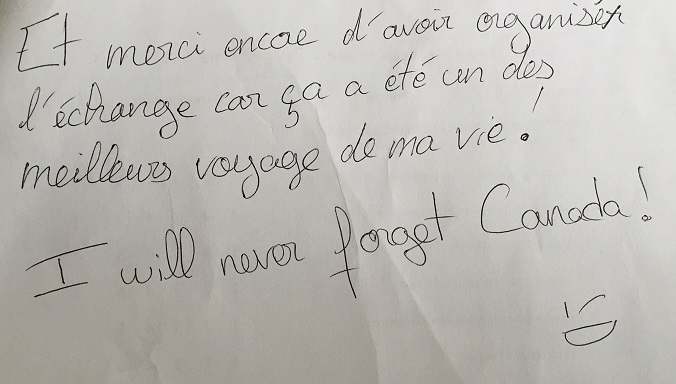 Et merci encore d'avoir organisér
l'échange car ça a été un des
meilleurs voyage de ma vie !
I will never forget Canada !